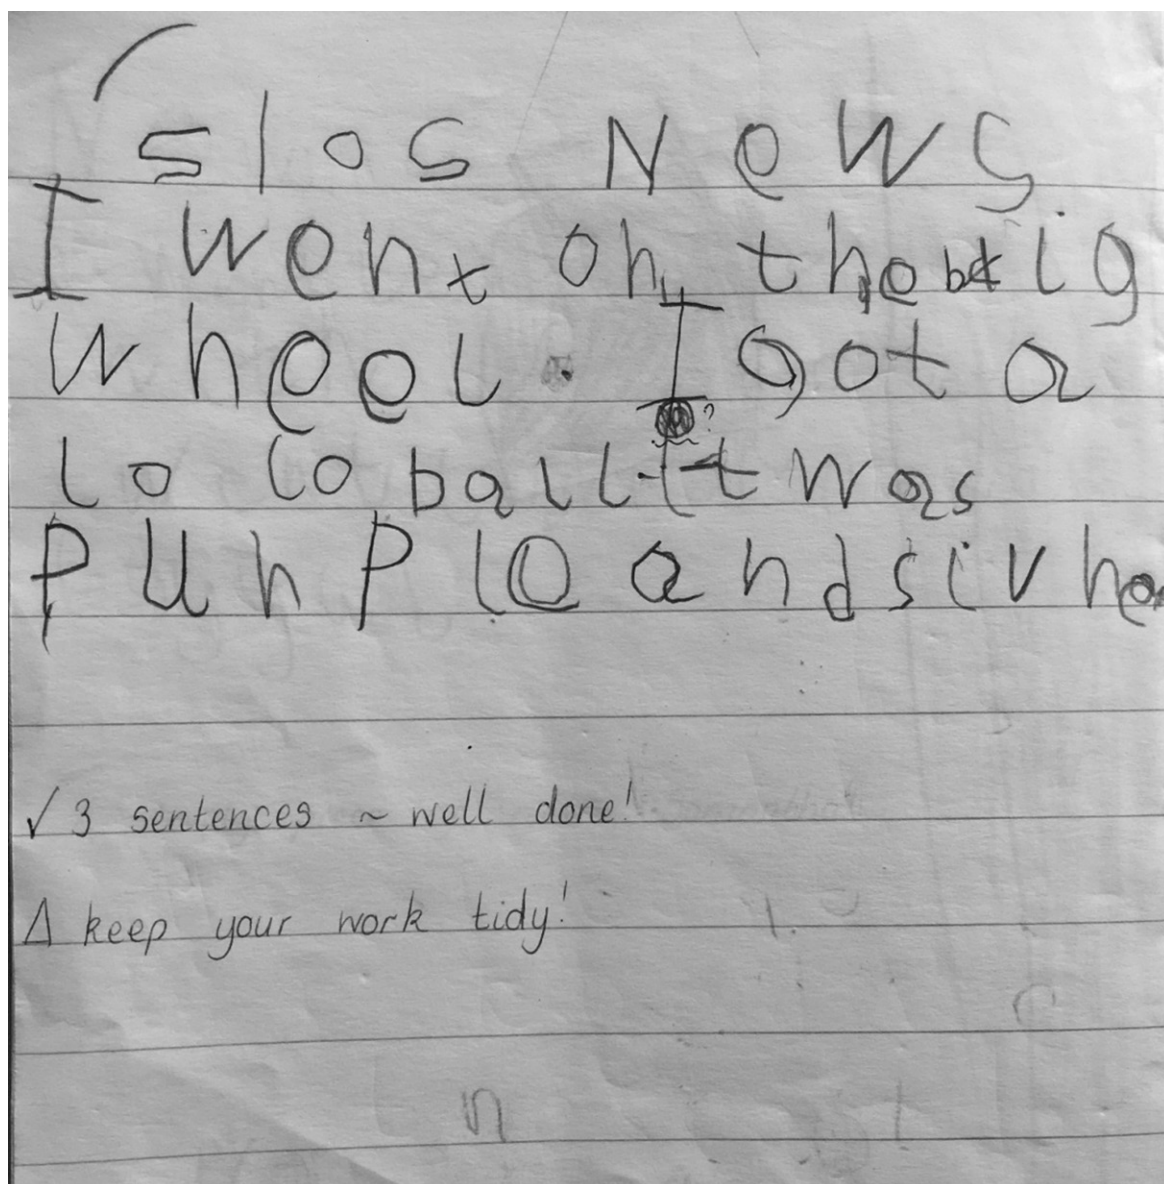 slos News
I went on the big
wheel. I got a
lo lo ball. It was
punple and sivhe
√ 3 sentences ~ well done!
Δ keep your work tidy!